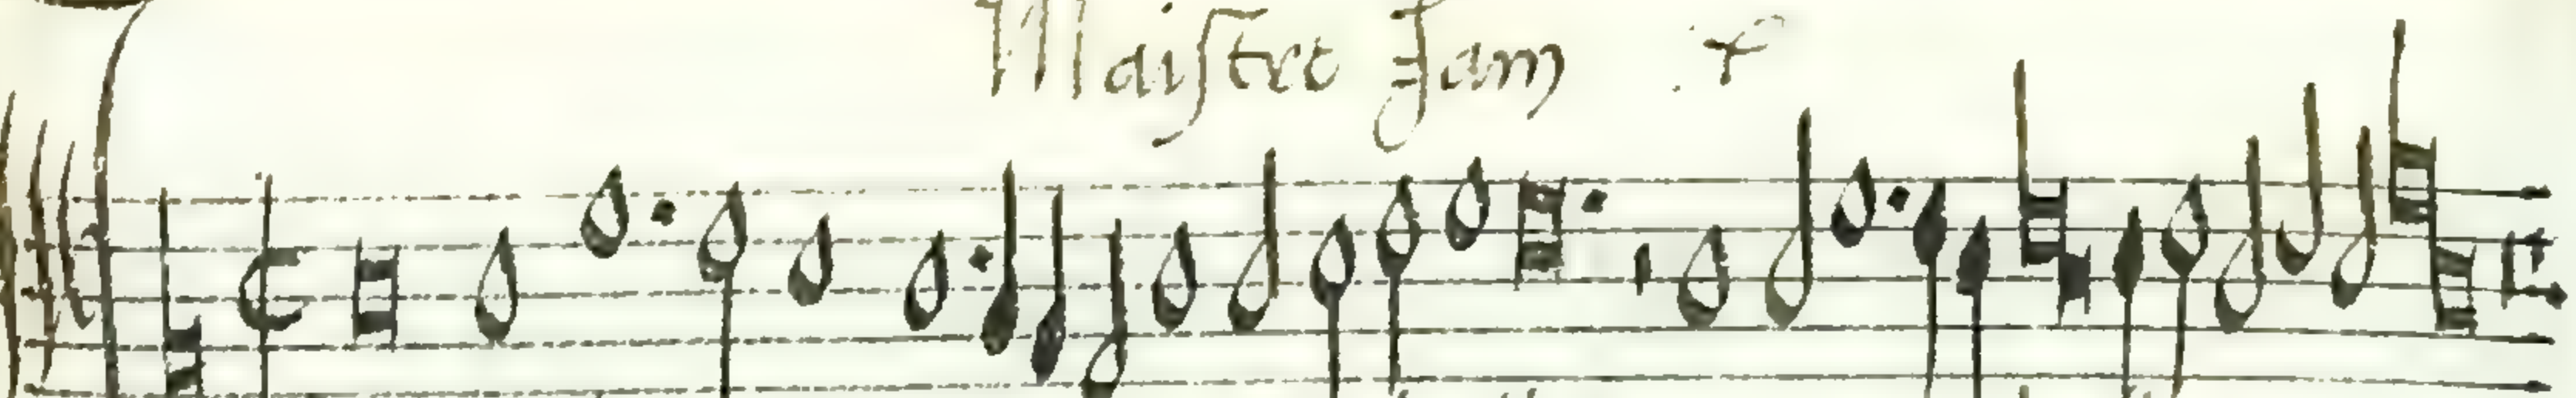 Maistre Jam